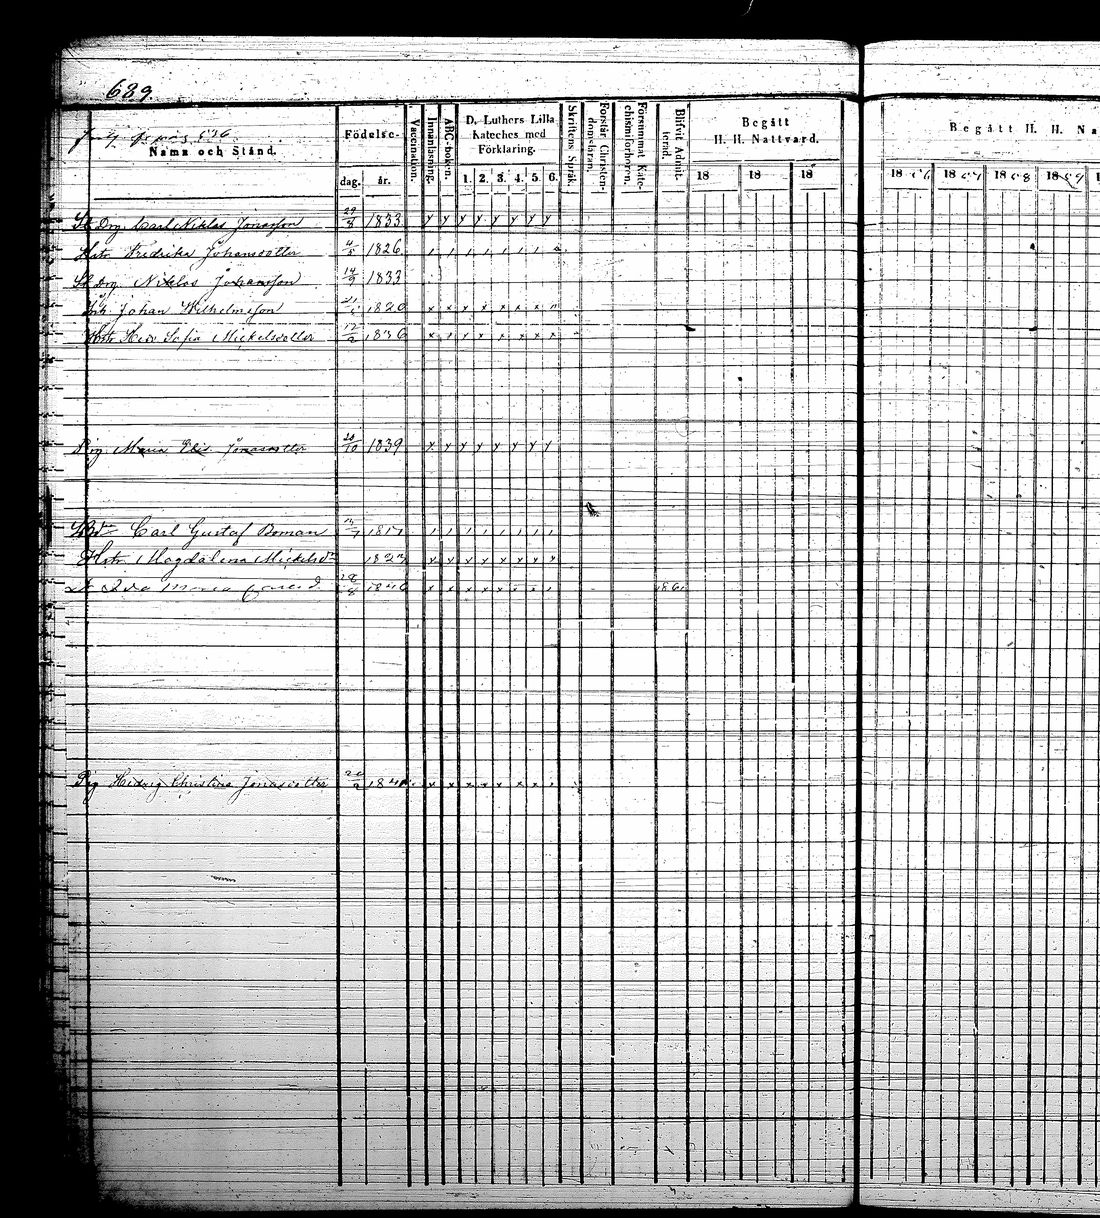 689.
Nama och Stånd.
Födelse-
dag. år.
Vaccination.
Innanläsning.
ABC-boken.
D. Luthers Lilla
Kateches med
Förklaring.
1. 2. 3. 4. 5. 6.
Skriftens Språk.
Förstår Christen-
domsläran.
Försummat Kate-
chismiförhören.
Blifvit Admit-
terad.
Begått
H. H. Nattvard.
18 18 18
Begått H. H. Na
1856 1857 1858 1859
Drg. Carl Niklas Jonasson 29/8 1833
Hstr Fredrika Johansdotter 4/5 1826
Drg Niklas Johansson 14/9 1833
Johan Wilhelmsson 1820
Hstr Hed Sofia Mickelsdotter 12/2 1836
Pig. Maria Elis. Jonasdotter 20/10 1839
Carl Gustaf Boman 1817
Hstr. Magdalena Mickelsdr 1827
D. Ida Maria 28/8 1846 1861
Pig Hedvig Christina Jonasdotter